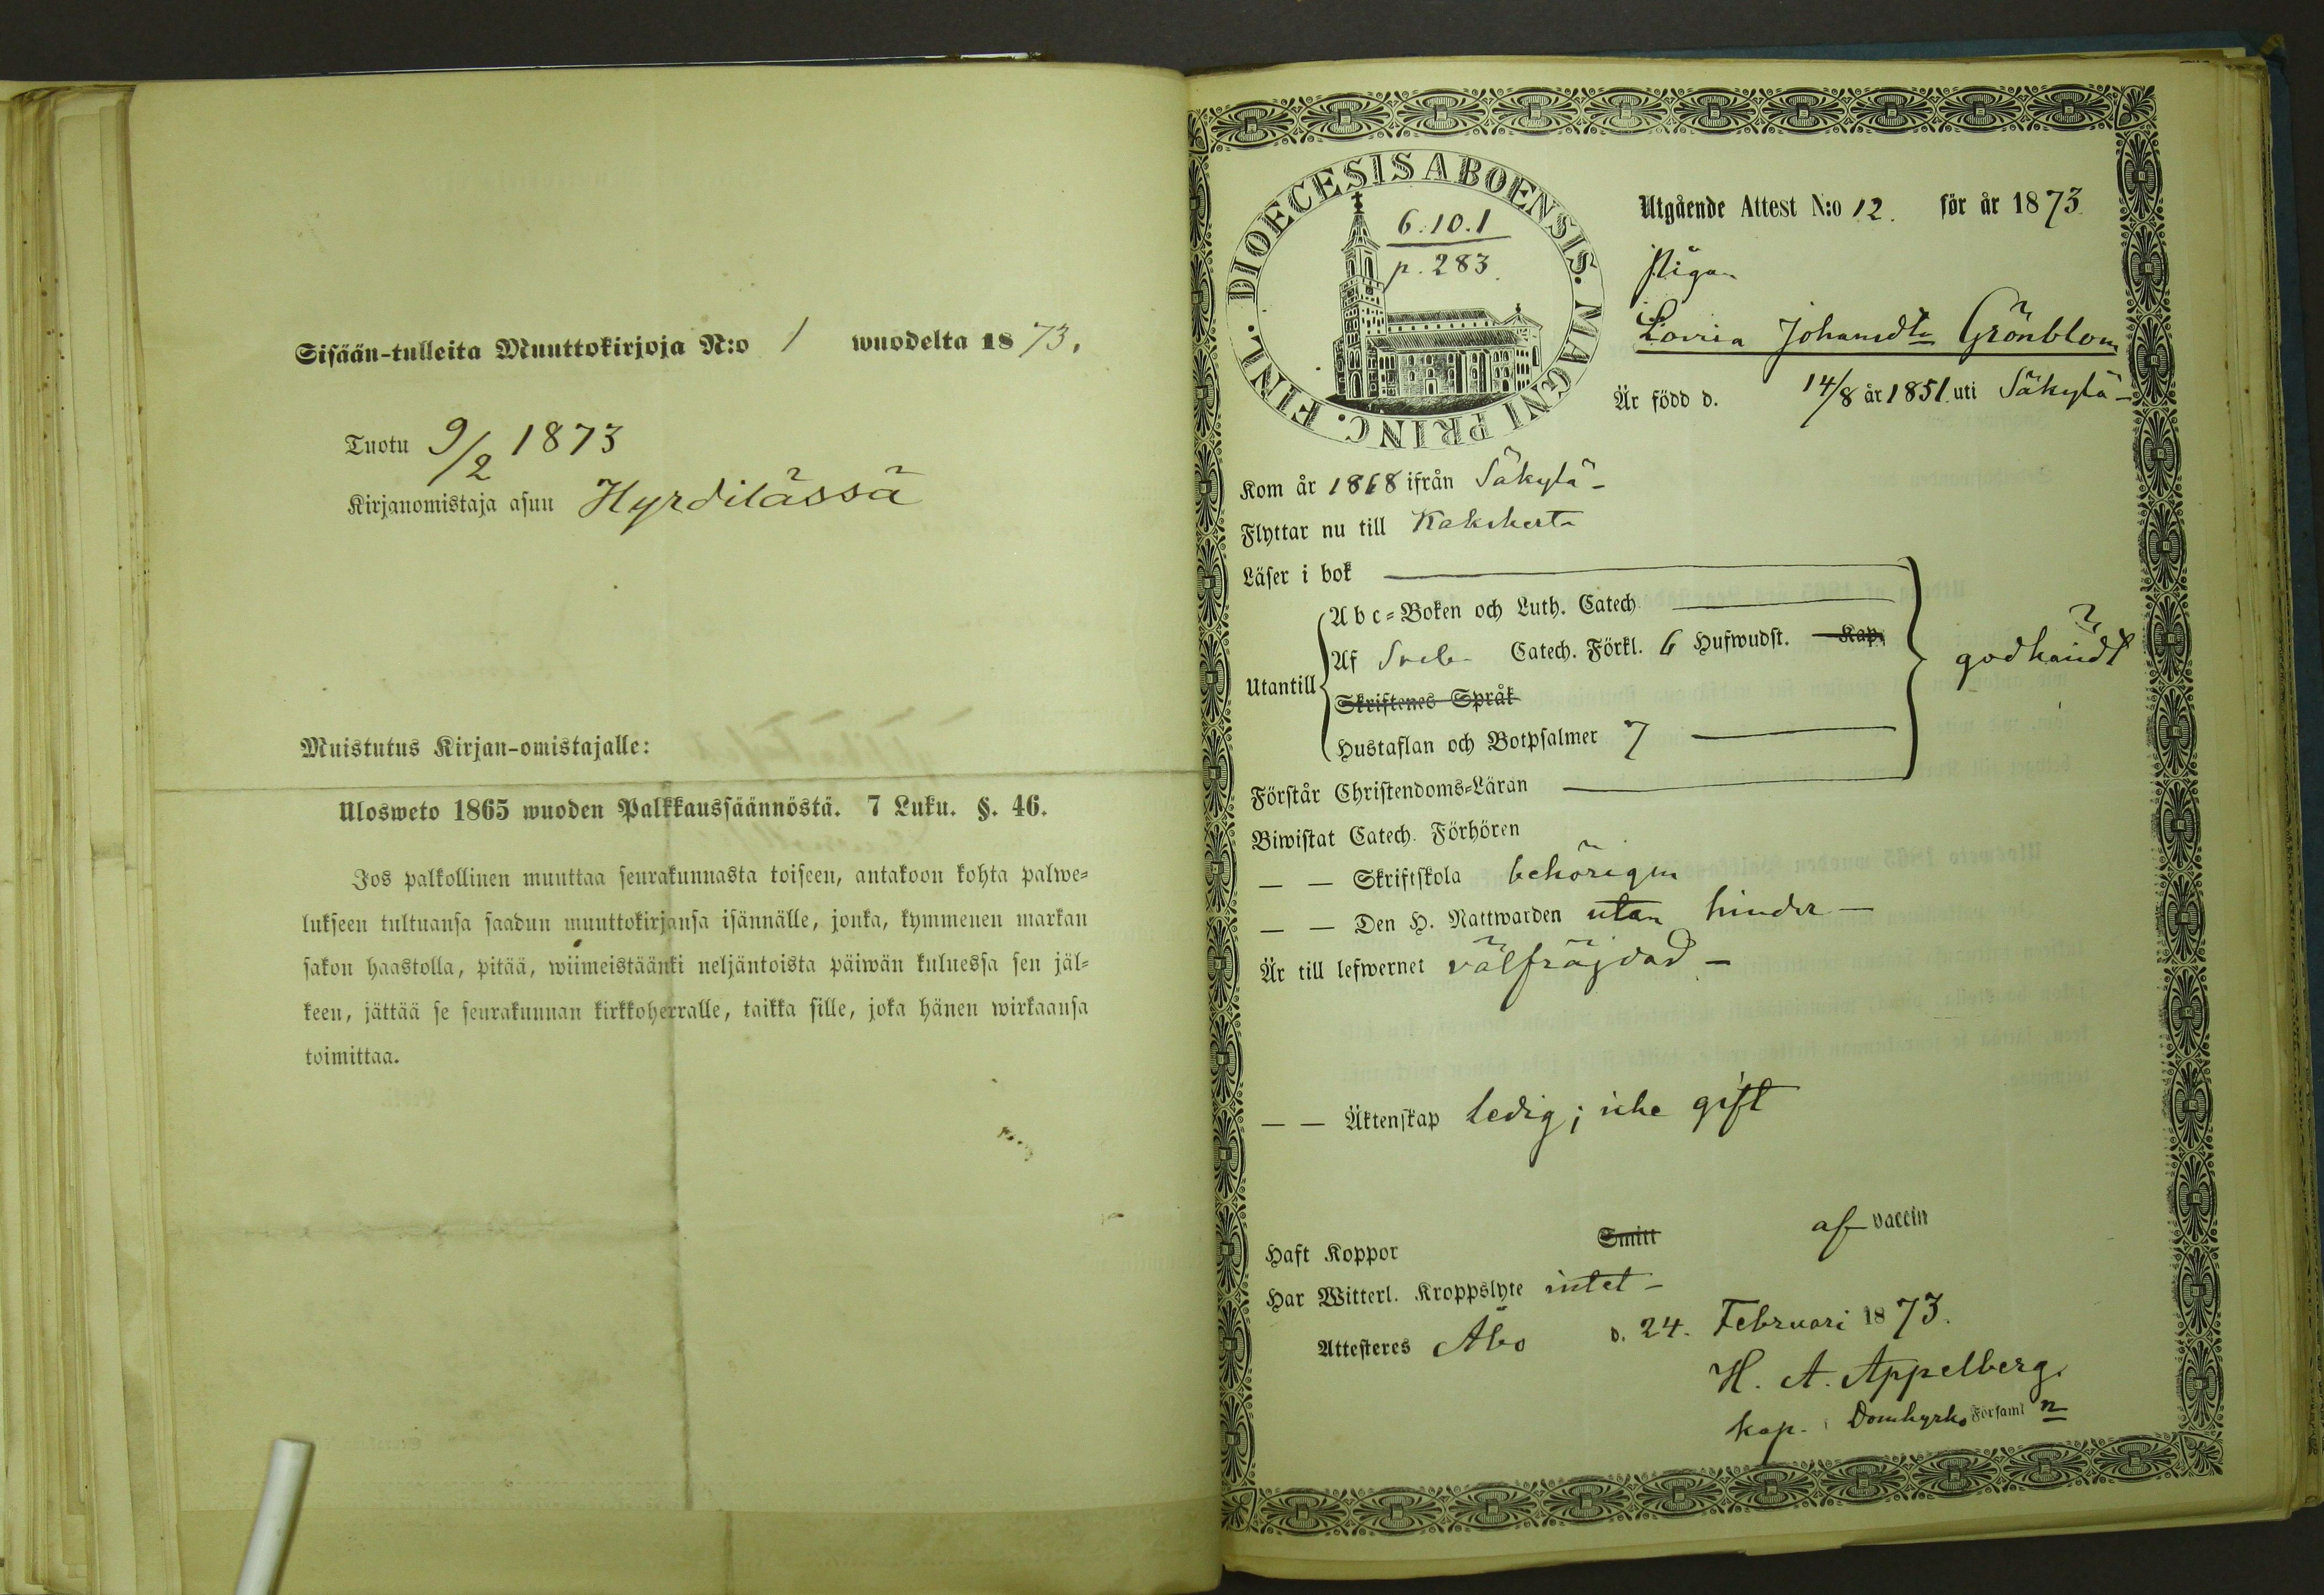 Sisään-tulleita Muuttokirjoja N:o 1 wuodelta 1873.
Tuotu 9/2 1873
Kirjanomistaja asuu Hyrdilässä
Muistutus Kirjan-omistajalle:
Ulosweto 1865 wuoden Palkkaussäännöstä. 7 Luku. §. 46.
Jos palkollinen muuttaa seurakunnasta toiseen, antakoon kohta palwe-
lukseen tultuansa saadun muuttokirjansa isännälle, jonka, kymmenen markan
sakon haastolla, pitää, wiimeistäänki neljäntoista päiwän kuluessa sen jäl-
keen, jättää se seurakunnan kirkkoherralle, taikka sille, joka hänen wirkaansa
toimittaa.
DIOECESIS ABOENSIS. MAGNI PRINC. FINL.
6.10.1
p. 283.
Utgående Attest N:o 12. för år 1873
Pigan
Lovisa Johansdtr Grönblom
Är född d. 14/8 år 1851 uti Säkylä
Kom år 1868 ifrån Säkylä
Flyttar nu till Kakskerta
Läser i bok
Utantill
Abc-Boken och Luth. Catech.
Af Sveb. Catech. Förkl. 6 Hufwudst. Kap.
Skriftenes Språk
Hustaflan och Botpsalmer 7
godkändt
Förstår Christendoms-Läran
Biwistat Catech. Förhören
— — Skriftskola behörigen
— — Den H. Nattwarden utan hinder
Är till lefwernet välfräjdad
— — Äktenskap ledig; icke gift
Haft Koppor Smitt af vaccin
Har Witterl. Kroppslyte intet
Attesteres Åbo d. 24. Februari 1873.
H. A. Appelberg.
kap. i Domkyrko Församl n